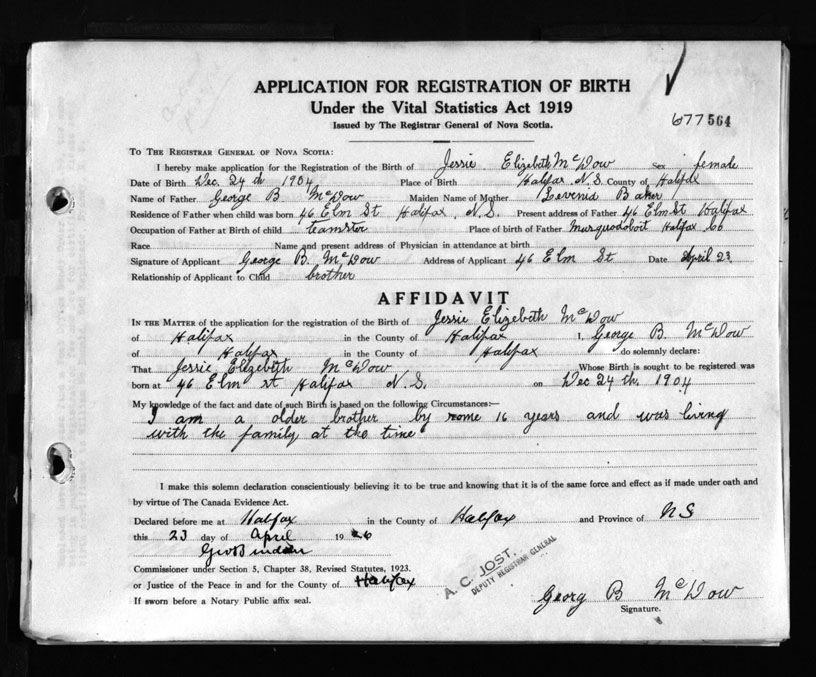 APPLICATION FOR REGISTRATION OF BIRTH
Under the Vital Statistics Act 1919
Issued by The Registrar General of Nova Scotia.
677 564
TO THE REGISTRAR GENERAL OF NOVA SCOTIA:
I hereby make application for the Registration of the Birth of Jessie Elizabeth McDow Sex female
Date of Birth Dec. 24 th 1904 Place of Birth Halifax N.S. County of Halifax
Name of Father George B McDow Maiden Name of Mother Levenia Baker
Residence of Father when child was born 46 Elm St Halifax, N.S. Present address of Father 46 Elm St Halifax
Occupation of Father at Birth of child teamster Place of birth of Father Musquodoboit Halifax Co
Race Name and present address of Physician in attendance at birth
Signature of Applicant George B. McDow Address of Applicant 46 Elm St Date April 23
Relationship of Applicant to Child brother
AFFIDAVIT
IN THE MATTER of the application for the registration of Birth of Jessie Elizabeth McDow
of Halifax in the County of Halifax I, George B. McDow
of Halifax in the County of Halifax do solemnly declare:
That Jessie Elizabeth McDow Whose Birth is sought to be registered was
born at 46 Elm st Halifax N.S. on Dec 24th, 1904
My knowledge of the fact and date of such Birth is based on the following Circumstances:—
I am a older brother by some 16 years and was living
with the family at the time
I make this solemn declaration conscientiously believing it to be true and knowing that it is of the same force and effect as if made under oath and
by virtue of The Canada Evidence Act.
Declared before me at Halifax in the County of Halifax and Province of NS
this 23 day of April 1926
Commissioner under Section 5, Chapter 38, Revised Statutes, 1923.
or Justice of the Peace in and for the County of Halifax
If sworn before a Notary Public affix seal.
A. C. JOST.
DEPUTY REGISTRAR GENERAL
Georg B McDow
Signature.